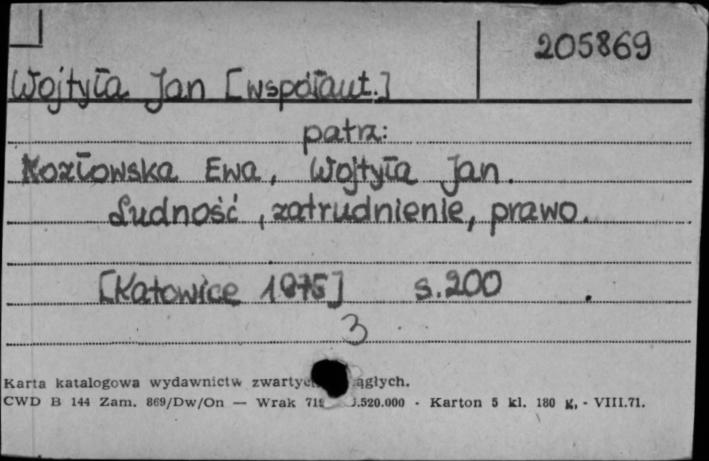 205869
Wojtyła Jan [współaut.]
patrz:
Kozłowska Ewa, Wojtyła Jan.
Ludność, zatrudnienie, prawo.
[Katowice 1975] s.200
3
Karta katalogowa wydawnictw ągłych.
CWD B 144 Zam. 869/Dw/On — Wrak .520.000 - Karton 5 kl. 180 g, - VIII.71.